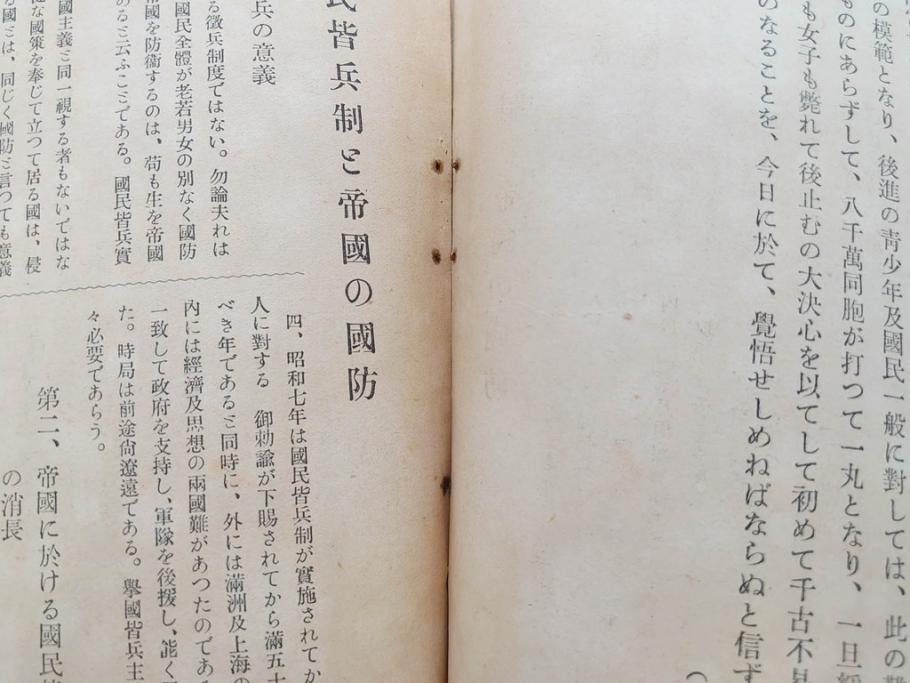 の模範となり、後進の青少年及國民一般に對しては、此の
ものにあらずして、八千萬同胞が打つて一丸となり、一旦
も女子も斃れて後止むの大決心を以てして初めて千古不
のなることを、今日に於て、覺悟せしめねばならぬと信ず
民皆兵制と帝國の國防
兵の意義
る徵兵制度ではない。勿論夫れは
國民全體が老若男女の別なく國防
帝國を防衞するのは、苟も生を帝國
あると云ふことである。國民皆兵實
國主義と同一視する者もないではな
な國策を奉じて立つて居る國は、侵
る國とは、同じく國防と言つても意義
四、昭和七年は國民皆兵制が實施されてか
人に對する 御勅諭が下賜されてから滿五十
べき年であると同時に、外には滿洲及上海の
內には經濟及思想の兩國難があつたのである
一致して政府を支持し、軍隊を後援し、能く
た。時局は前途尙遼遠である。擧國皆兵主
々必要であらう。
第二、帝國に於ける國民
の消長